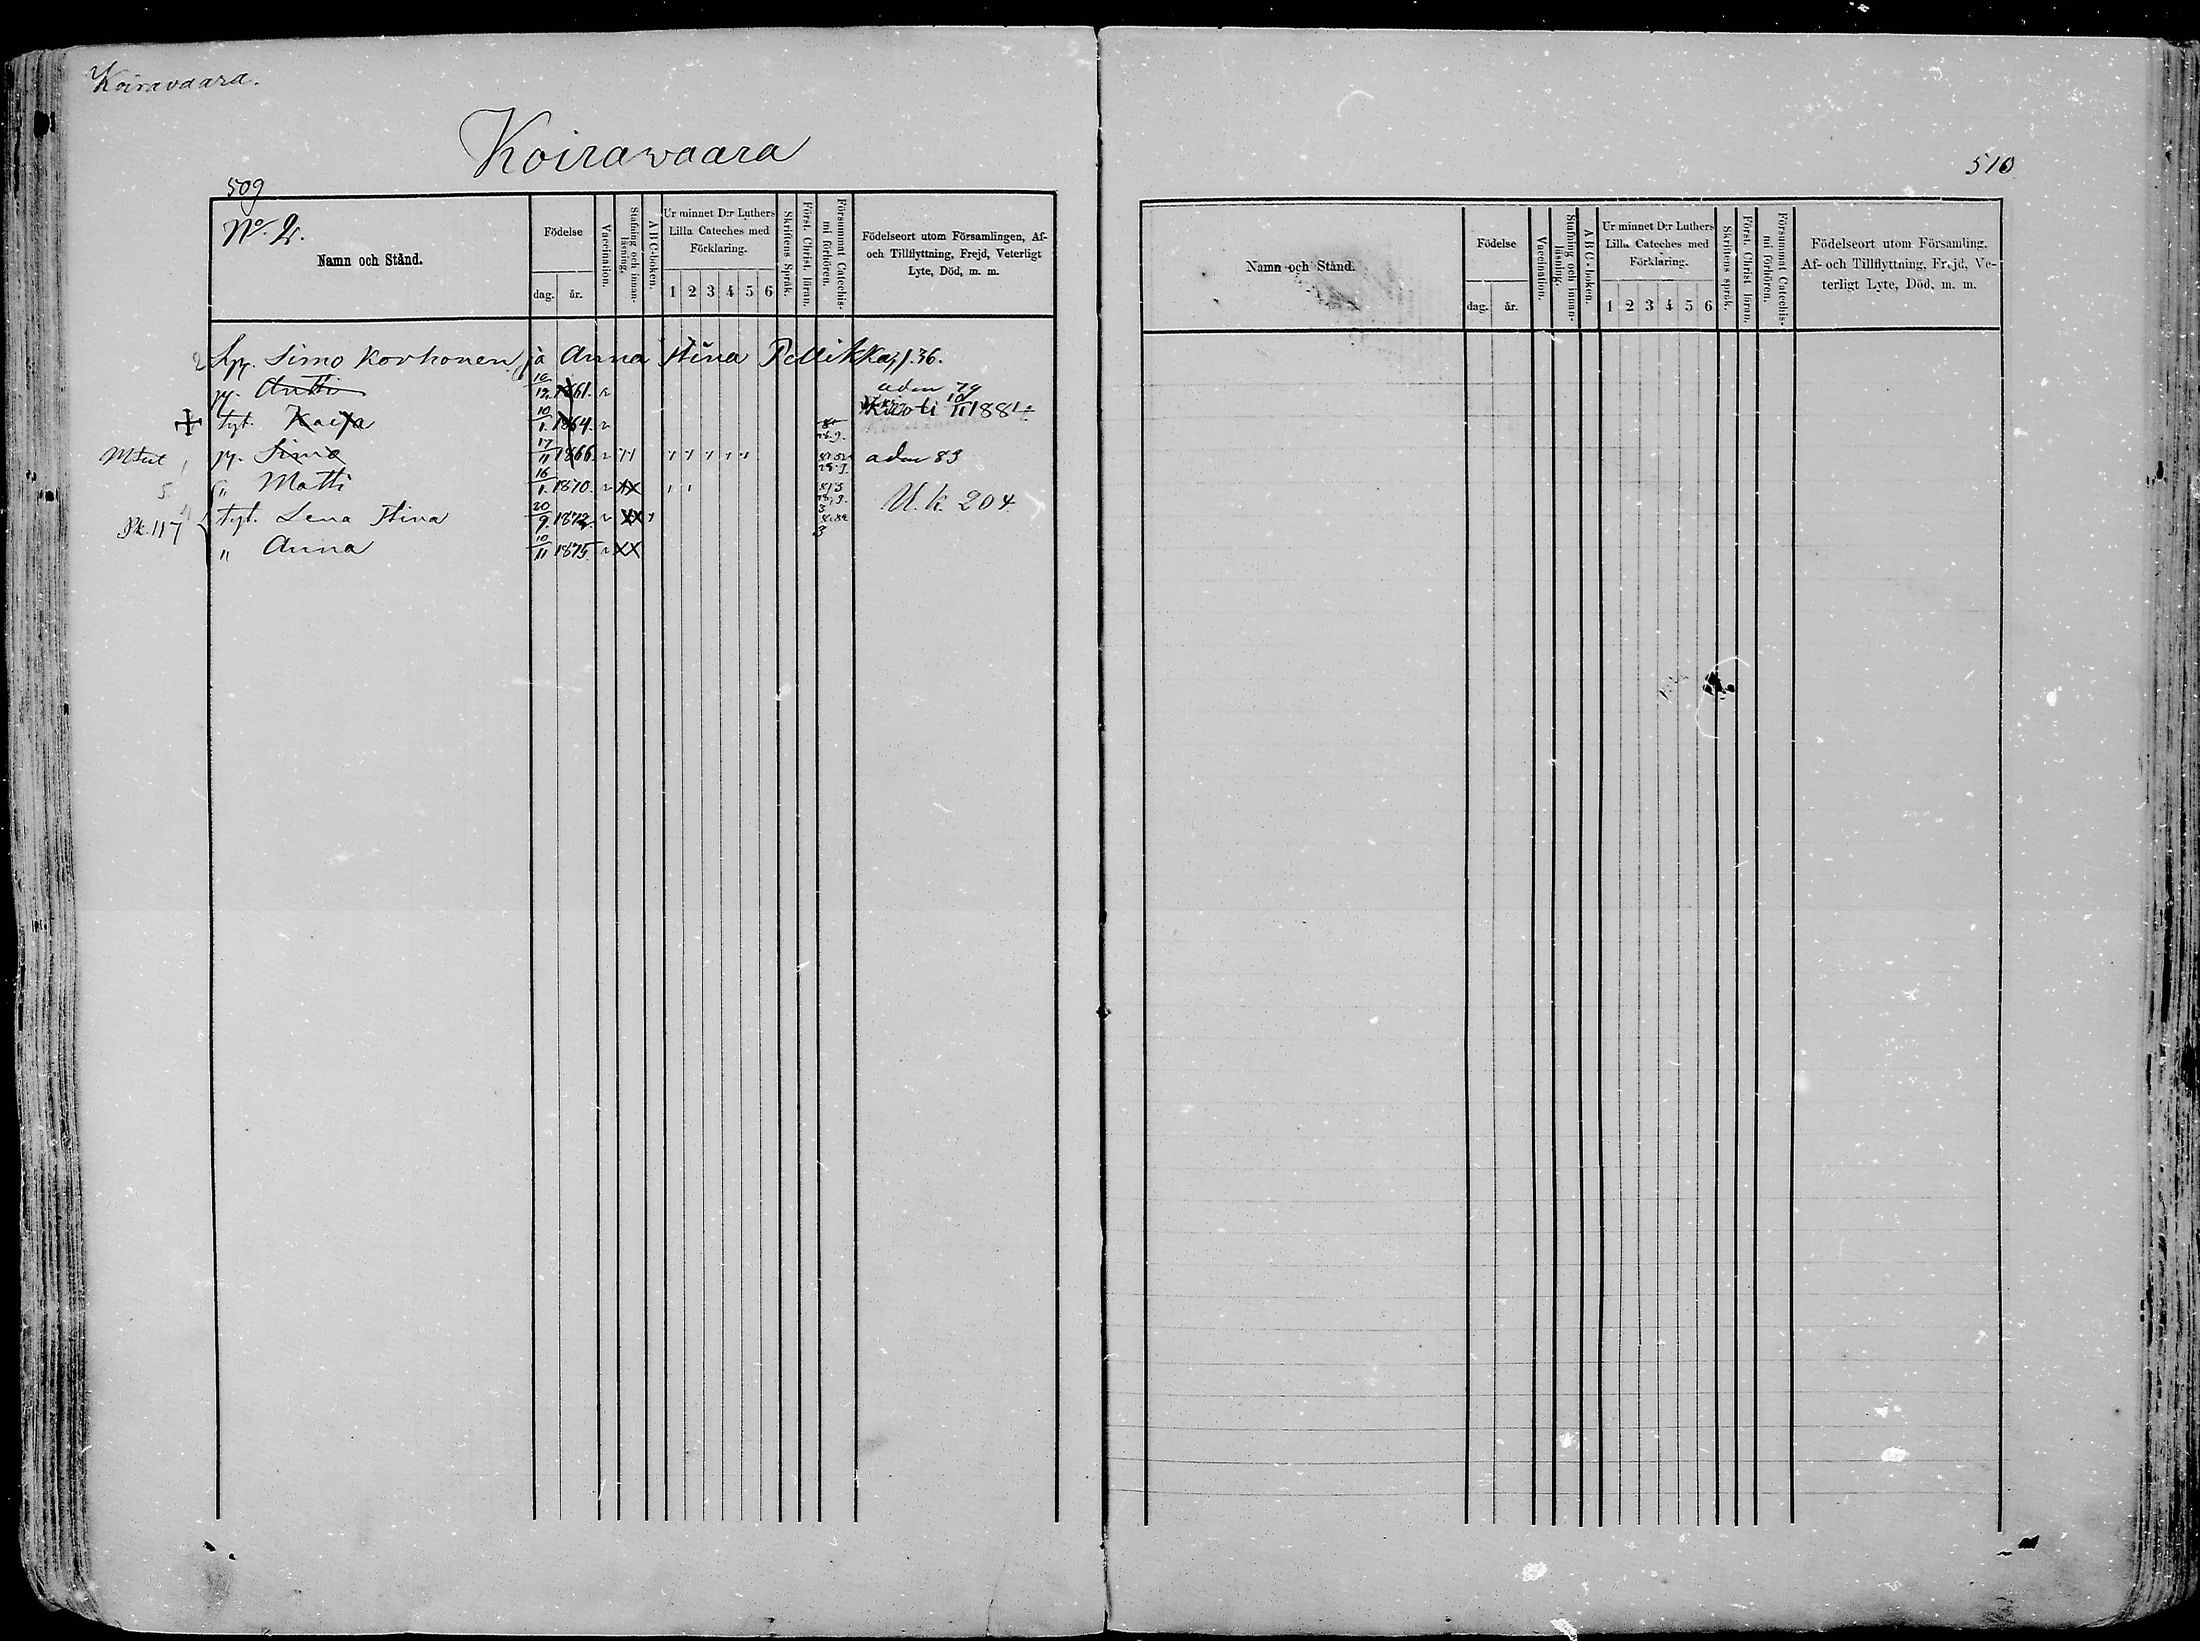 Koiravaara.
Koirawaara
509
No 2.
Namn och Stånd.
Födelse
dag. år.
Vaccination.
Stafning och innanläsning.
A B C-boken.
Ur minnet D:r Luthers
Lilla Cateches med
Förklaring.
1 2 3 4 5 6
Skriftens Språk.
Först. Christ. läran.
Försummat Catechismi förhören.
Födelseort utom Församlingen, Af-
och Tillflyttning, Frejd, Veterligt
Lyte, Död, m. m.
2 Simo Korhonen ja Anna Stina Pellikka, 36.
py. Antti 1861. adm 79
tyt. Kaisa 10/1 1864. Kuoli 1884
py. Simo 17/11 1866. adm 83
5 " Matti 16/1 1870.
Pk. 117 tyt. Lena Stina 20/9 1872. U. k. 204
" Anna 10/11 1875.
510
Namn och Stånd.
Födelse
dag. år.
Vaccination.
Stafning och innanläsning.
A B C-boken.
Ur minnet D:r Luthers
Lilla Cateches med
Förklaring.
1 2 3 4 5 6
Skriftens språk.
Först. Christ läran.
Försummat Catechismi förhören.
Födelseort utom Församling.
Af- och Tillflyttning, Frejd, Ve-
terligt Lyte, Död, m. m.